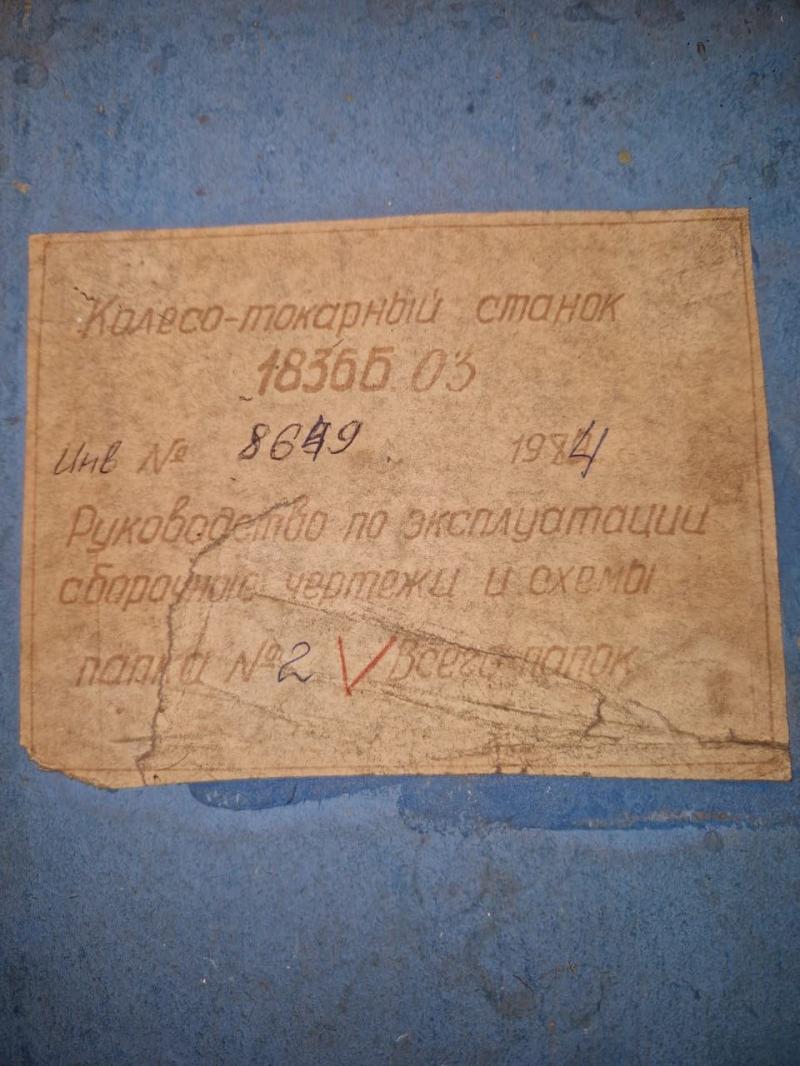 Колесо-токарный станок
1836Б 03
Инв № 1984
Руководство по эксплуатации
сборочные чертежи и схемы
папка № 2 Всего папок